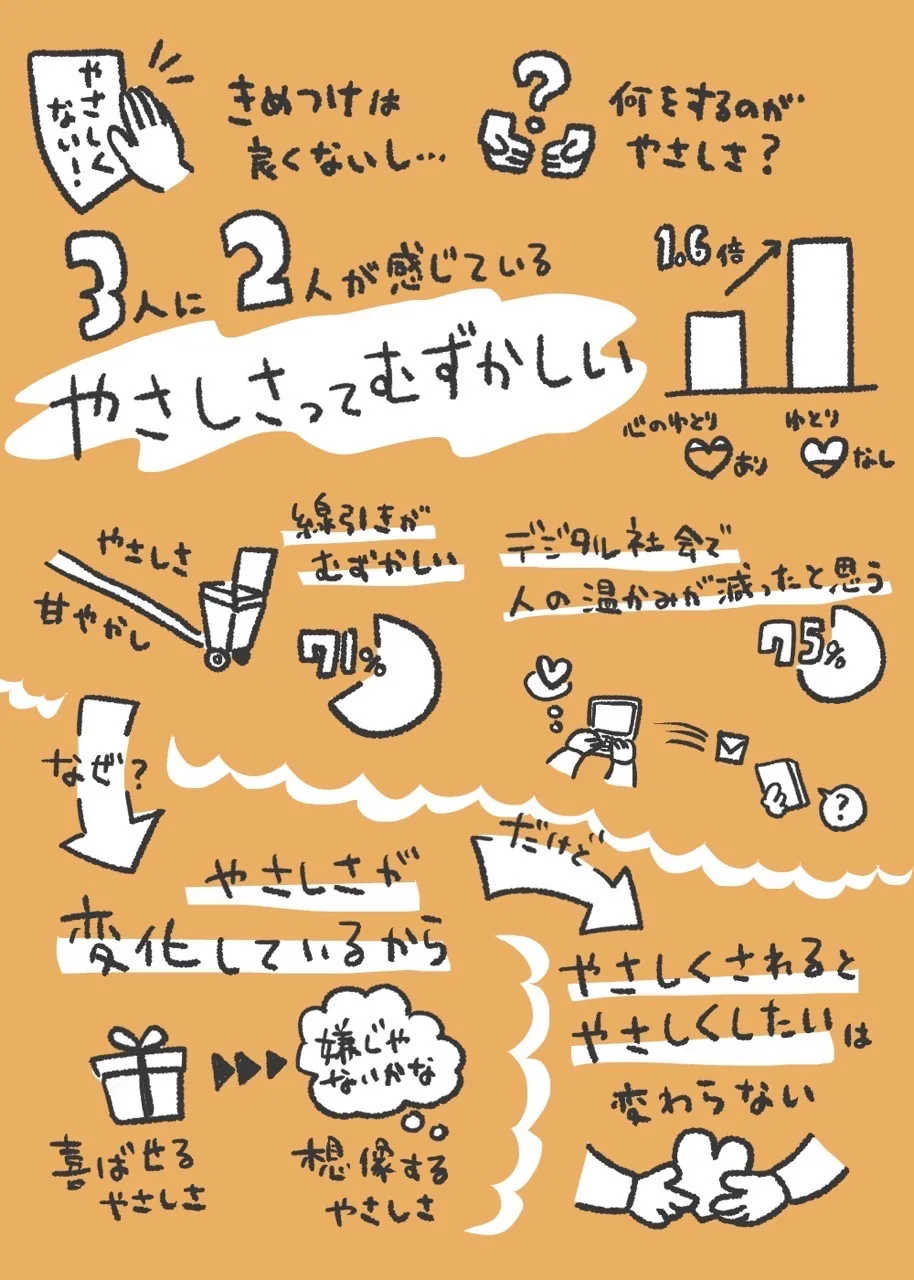 やさしく
ない！
きめつけは
良くないし…
何をするのが
やさしさ？
3人に2人が感じている
やさしさってむずかしい
1.6倍
心のゆとり
あり
ゆとり
なし
やさしさ
甘やかし
線引きが
むずかしい
71%
デジタル社会で
人の温かみが減ったと思う
75%
?
なぜ？
やさしさが
変化しているから
喜ばせる
やさしさ
嫌じゃ
ないかな
想像する
やさしさ
だけど
やさしくされると
やさしくしたいは
変わらない